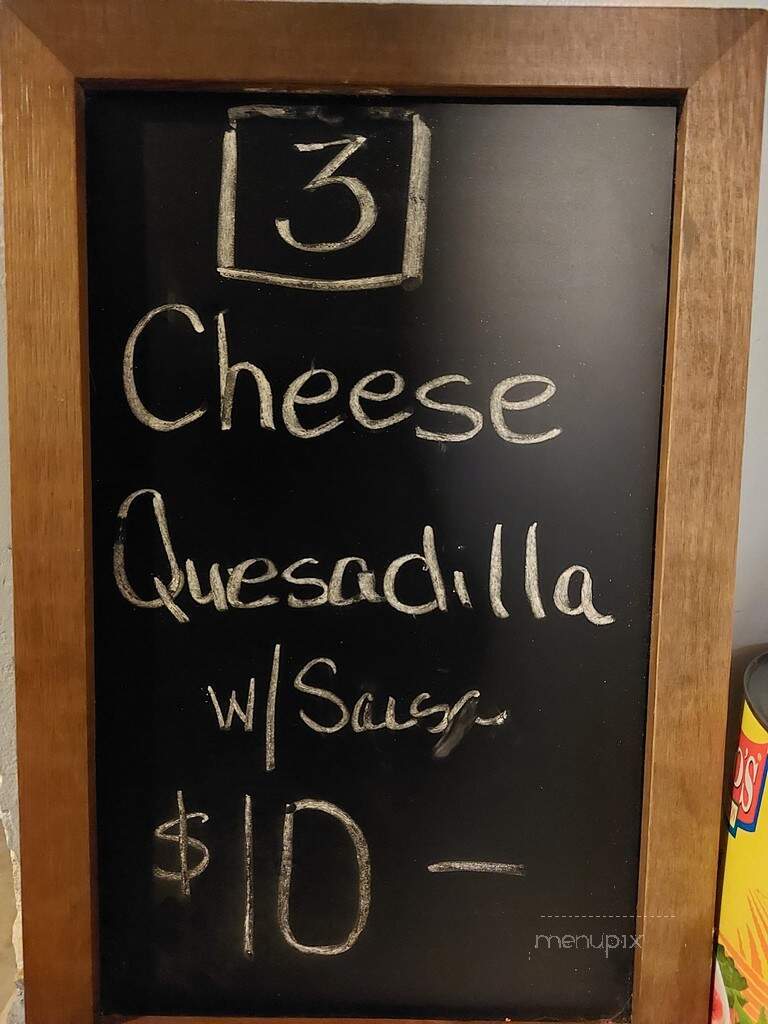 3
Cheese
Quesadilla
w/ Salsa
$10 —
menupix